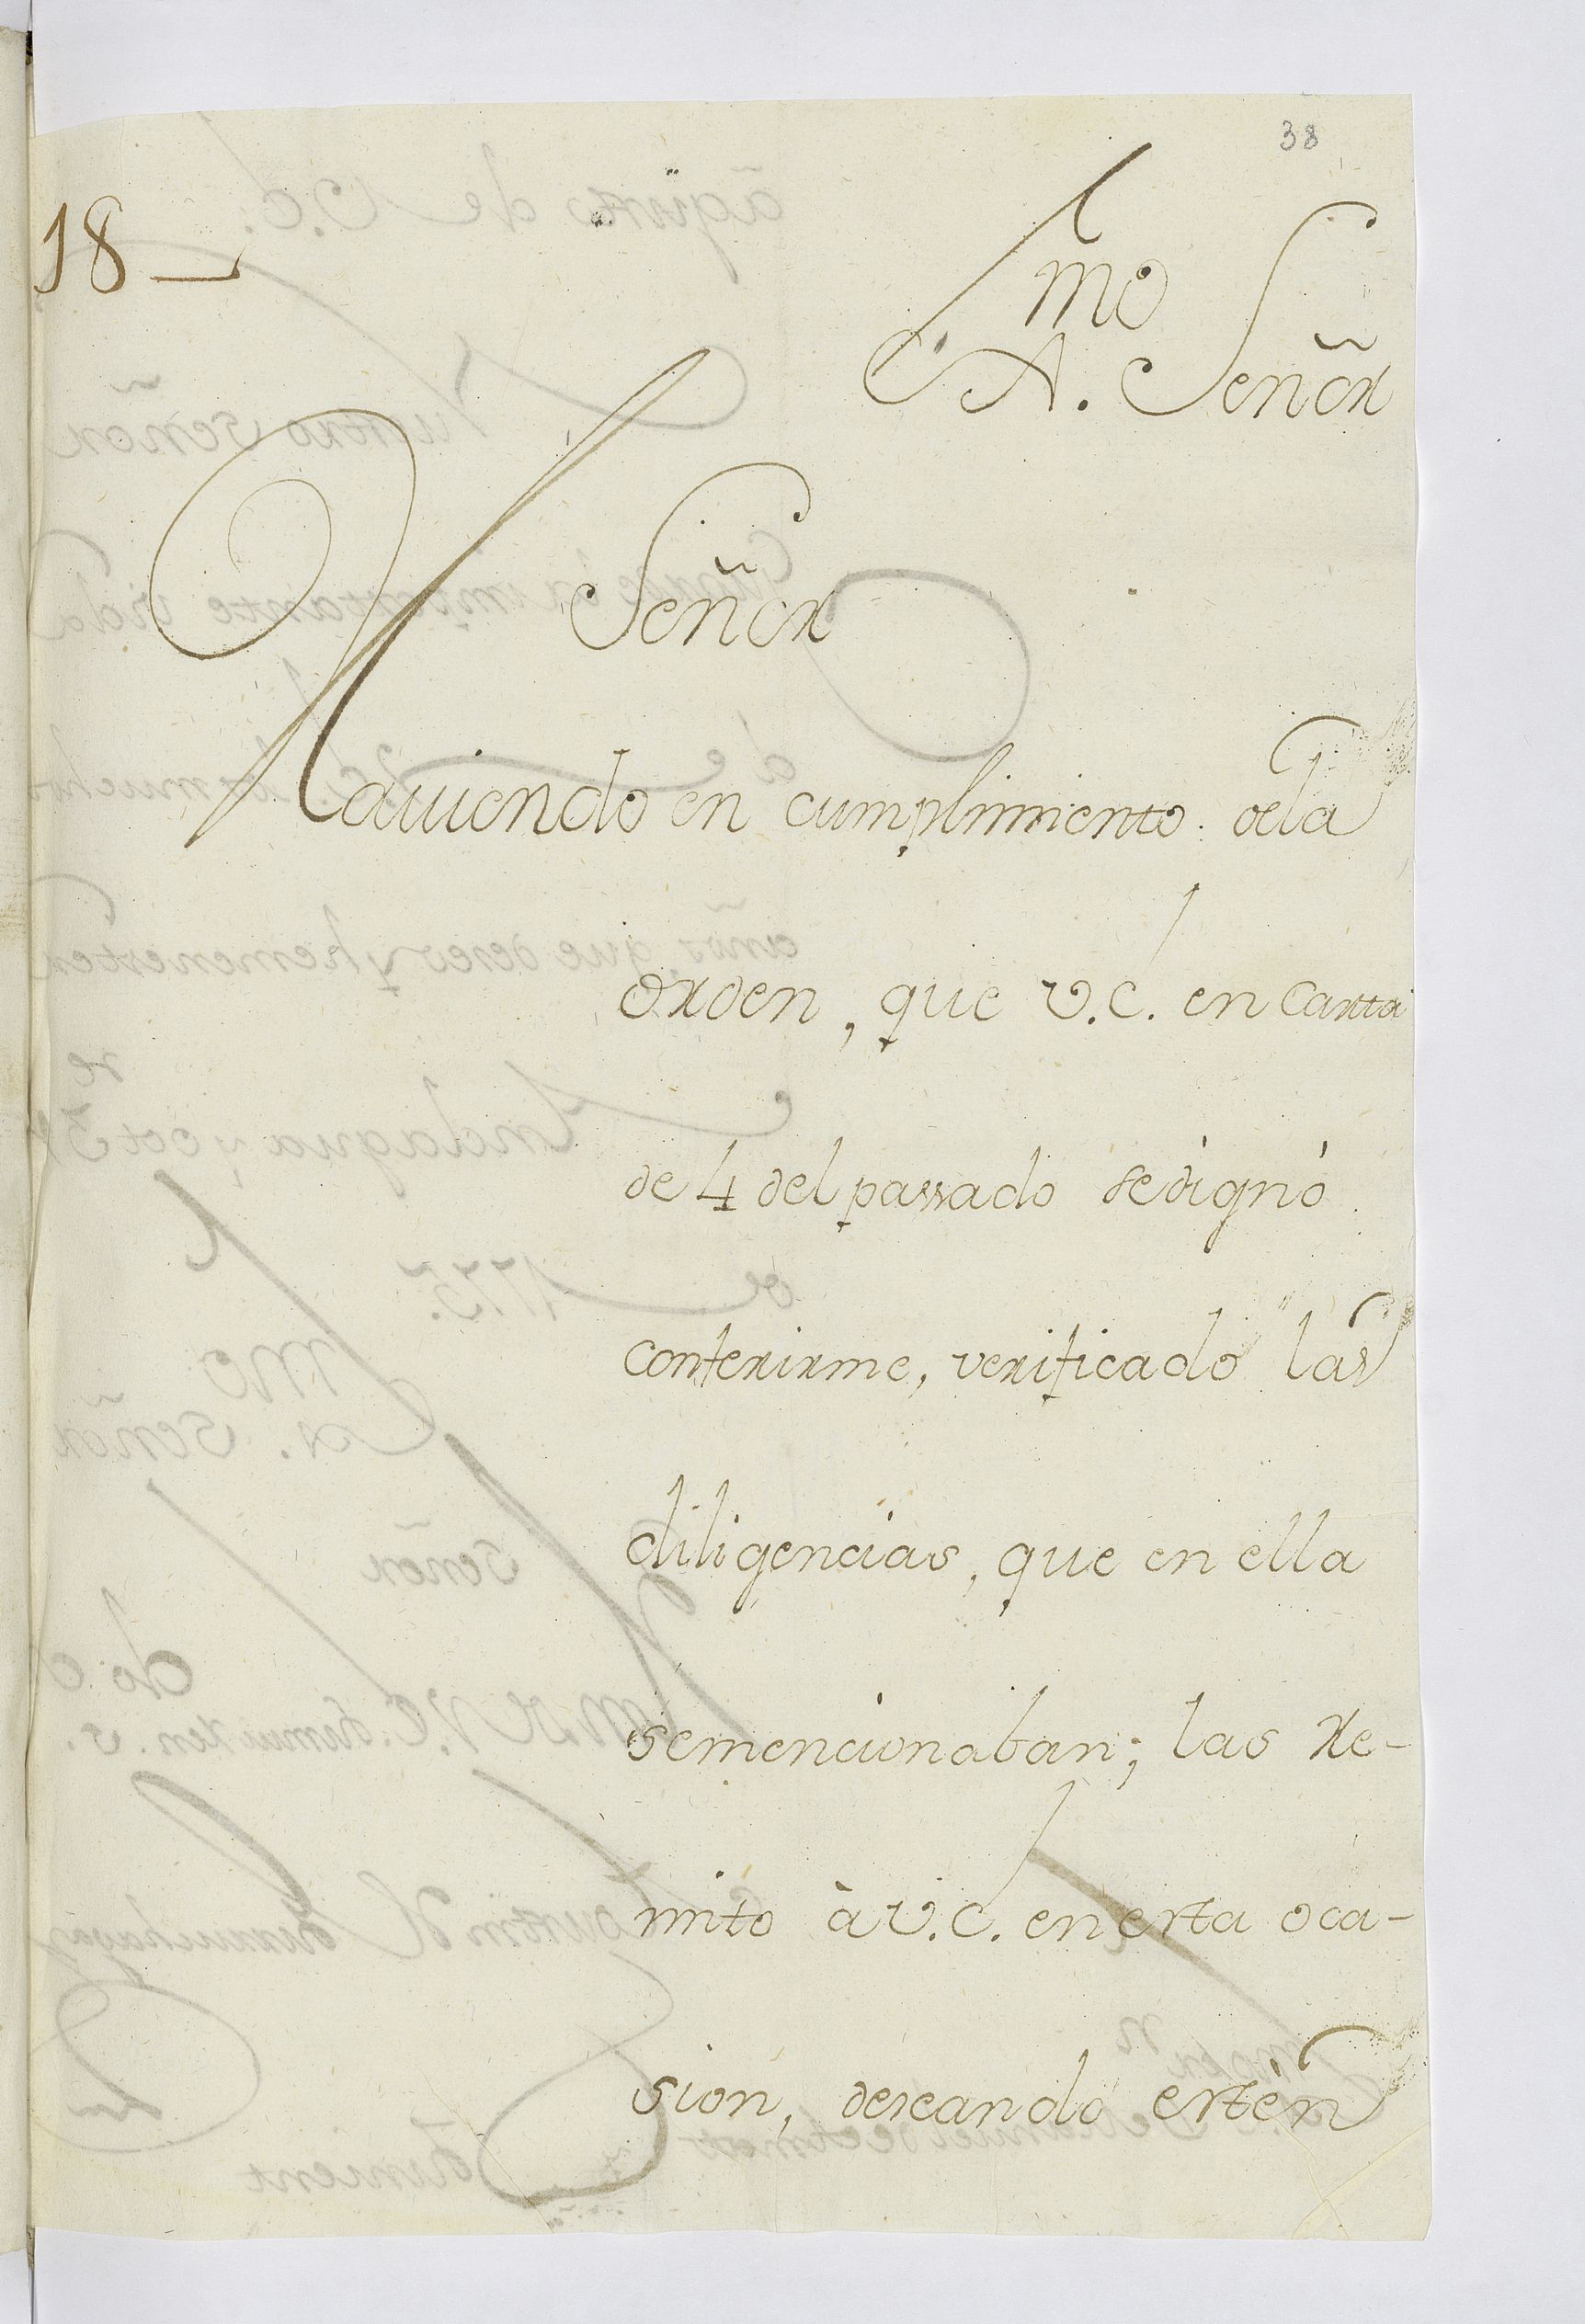 38
18
mo
Ex. Señor
Señor
Haviendo en cumplimiento de la
orden, que V.E. en Carta
de 4 del passado se dignò
conferirme, verificado las
diligencias, que en ella
semencionaban; las Re-
mito à V.E. en esta oca-
sion, deseando estèn